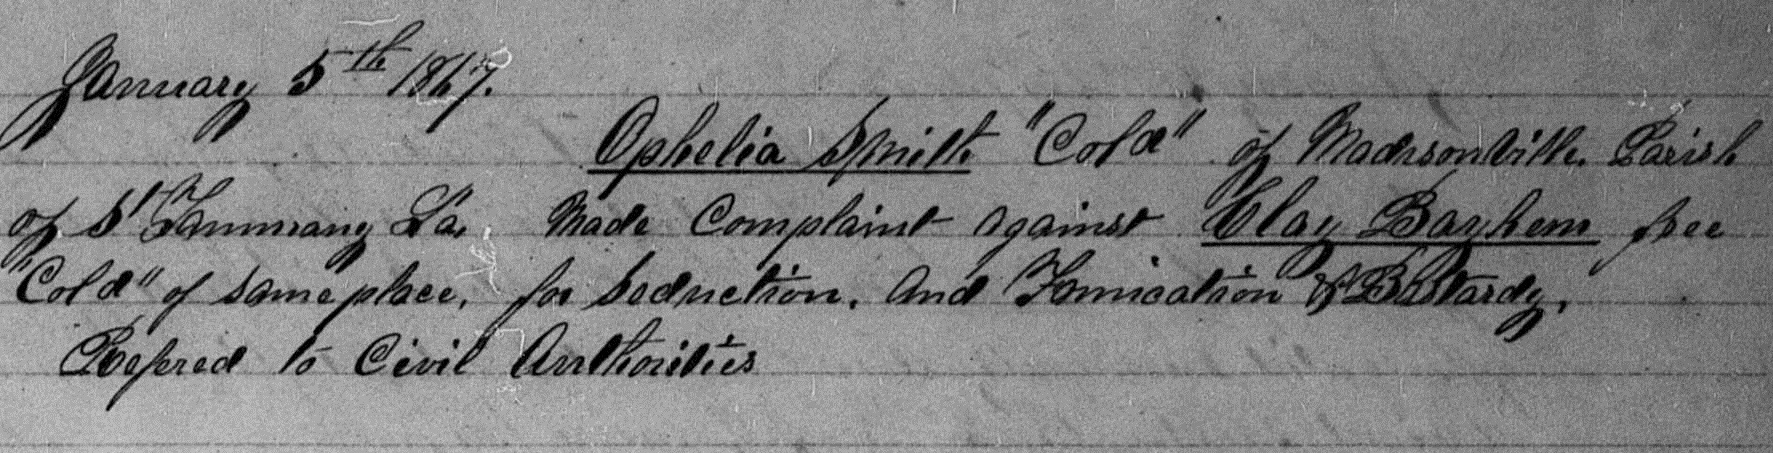 January 5th 1867.
Ophelia Smith "Cold" of Madisonville, Parish
of St Tammany La. Made Complaint against Clay Bayhem free
"Cold" of same place, for Seduction, and Fornication & Bastardy,
Refered to Civil Authorities